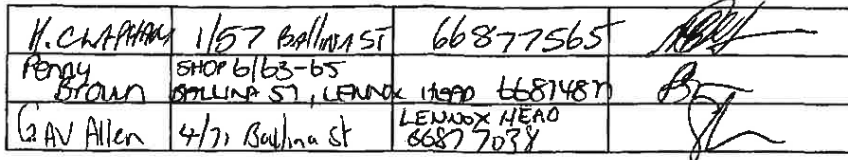 H. CLAPHAM 1/57 Ballina ST 66877565
Penny Brown SHOP 6/63-65 BALLINA ST, LENNOX HEAD
GAV Allen 4/71 Ballina St LENNOX HEAD 66877038